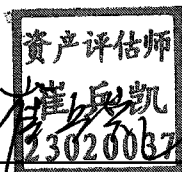 资产评估师
崔兵凯
23020037